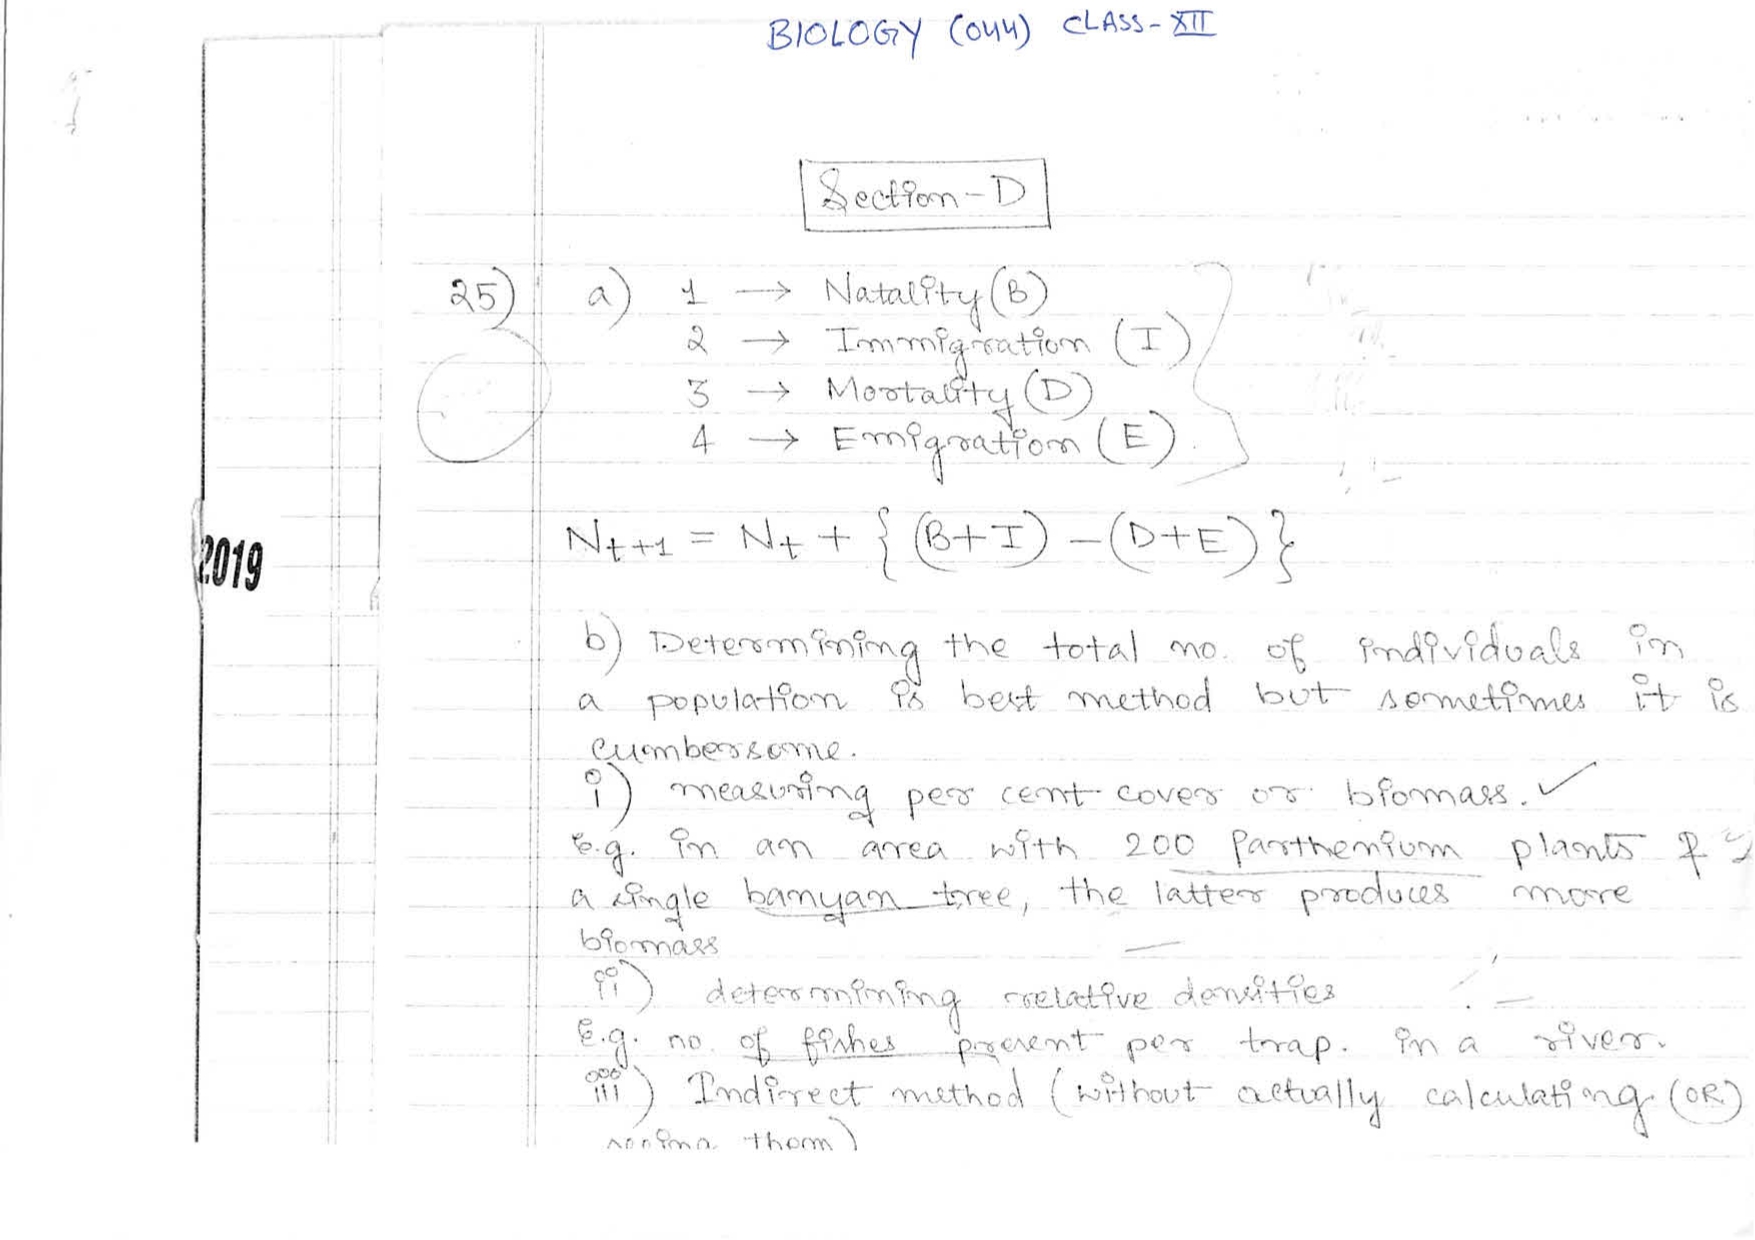 BIOLOGY (044) CLASS-XII
Section-D
25) a) 1 → Natality (B)
2 → Immigration (I)
3 → Mortality (D)
4 → Emigration (E)
N_{t+1} = N_t + { (B+I) - (D+E) }
2019
b) Determining the total no. of individuals in
a population is best method but sometimes it is
cumbersome.
i) measuring per cent cover or biomass. ✓
E.g. in an area with 200 Parthenium plants &
a single banyan tree, the latter produces more
biomass
ii) determining relative densities
E.g. no. of fishes present per trap. in a river.
iii) Indirect method (without actually calculating (OR)
them)